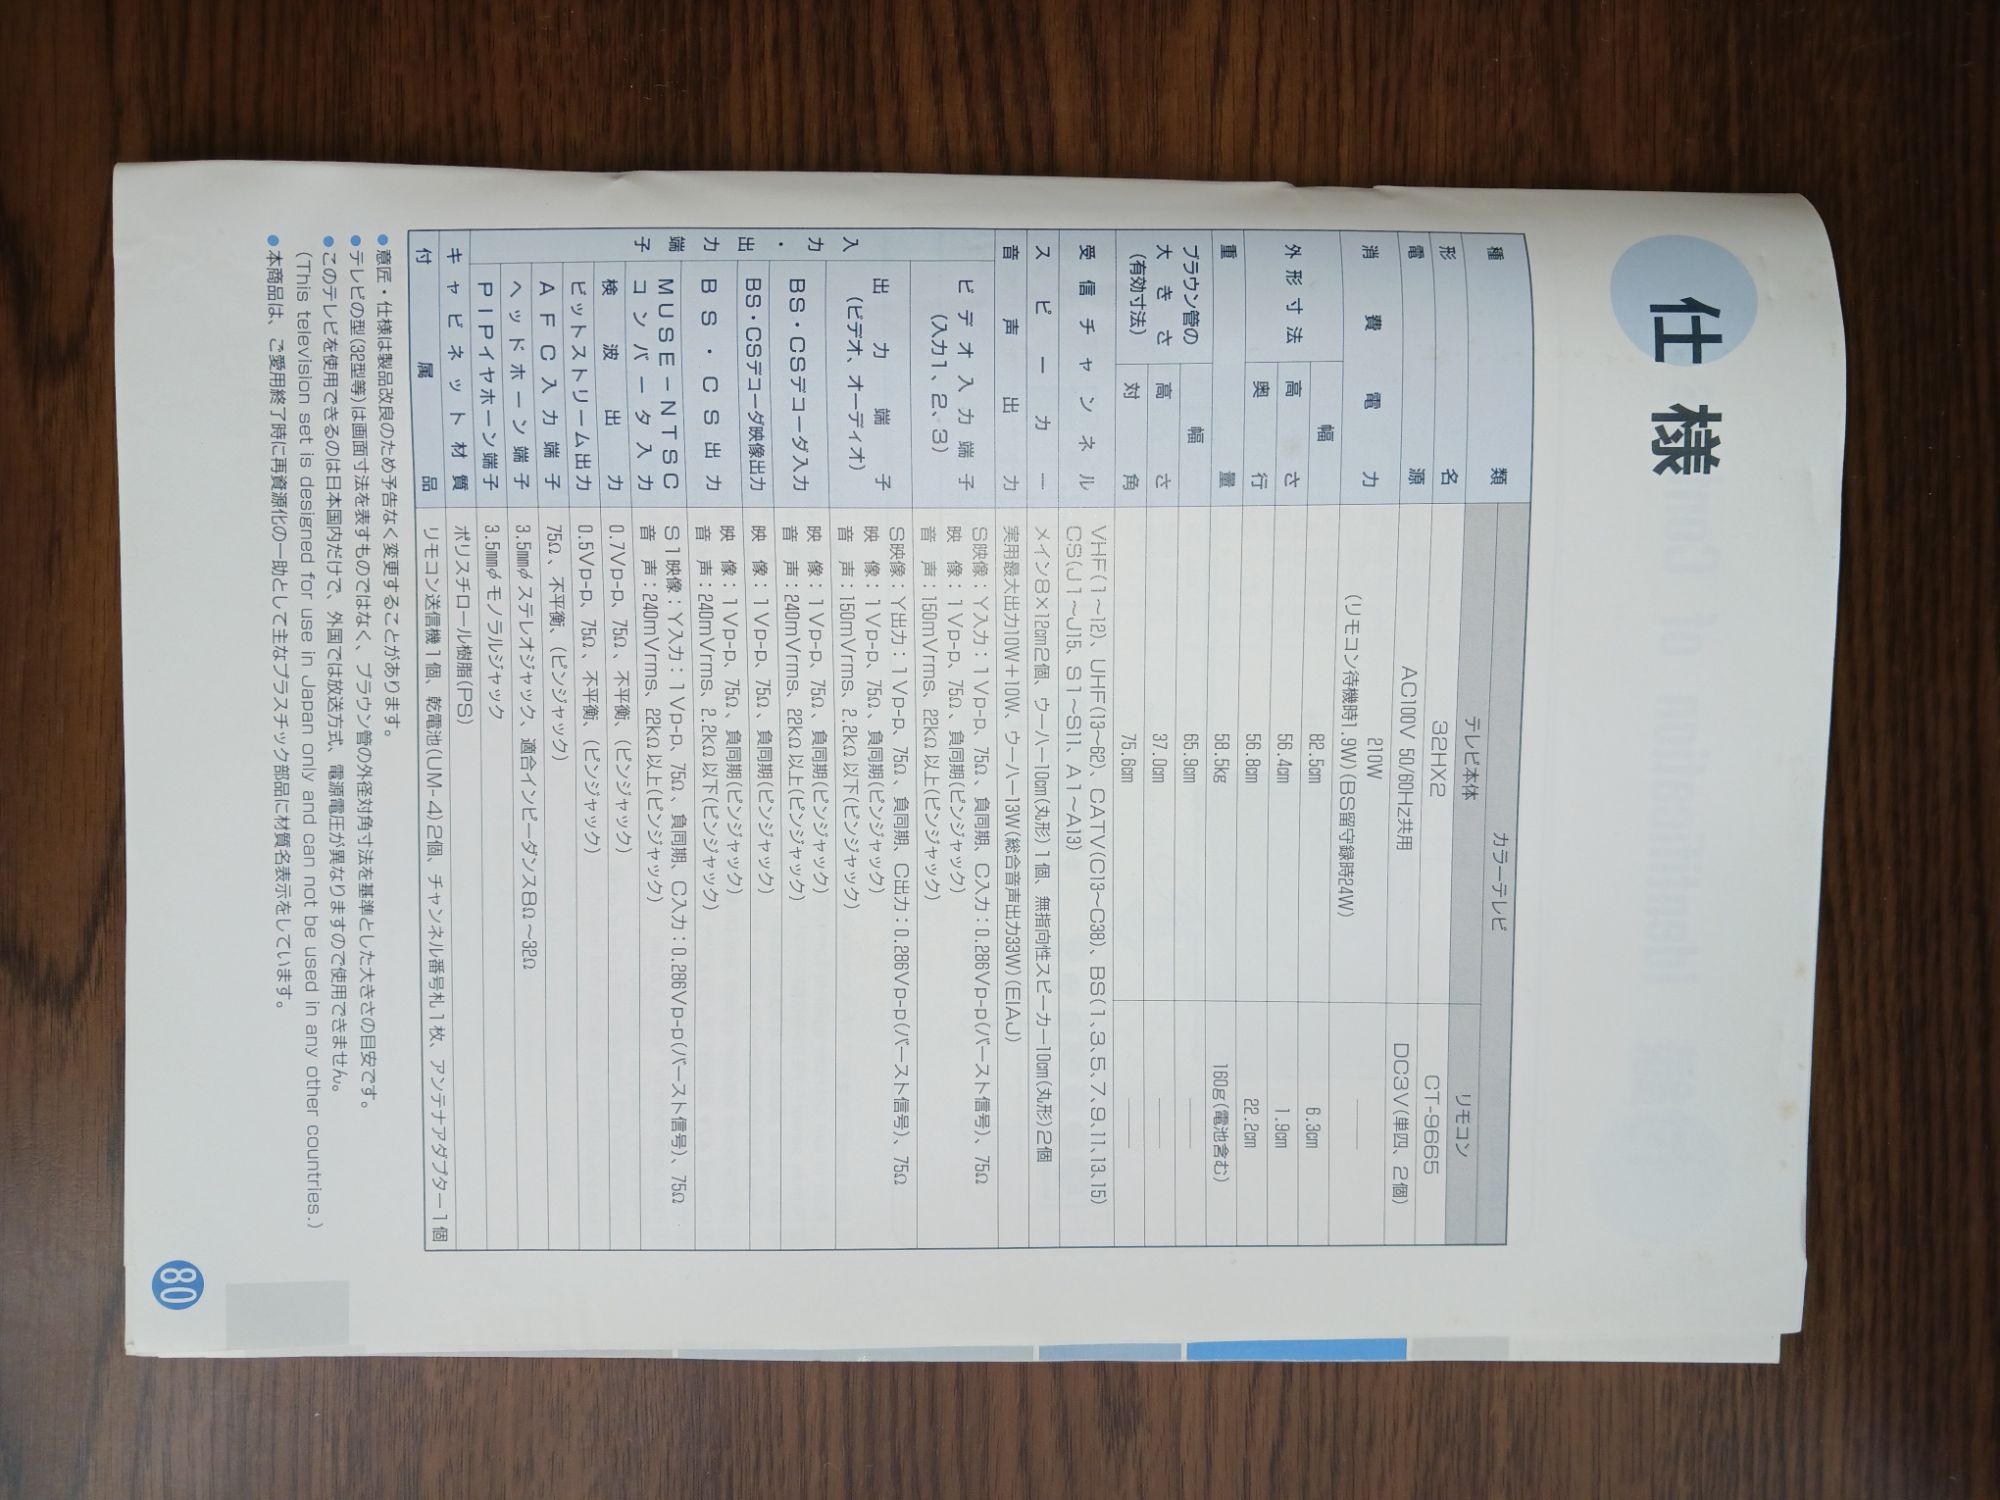 仕様
種類 カラーテレビ
テレビ本体 リモコン
形名 32HX2 CT-9665
電源 AC100V 50/60Hz共用 DC3V(単四、2個)
消費電力 210W ――
(リモコン待機時1.9W)(BS留守録時24W)
外形寸法 幅 82.5cm 6.3cm
高さ 56.4cm 1.9cm
奥行 56.8cm 22.2cm
重量 58.5kg 160g(電池含む)
ブラウン管の大きさ(有効寸法) 幅 65.9cm ――
高さ 37.0cm ――
対角 75.6cm ――
受信チャンネル VHF(1~12)、UHF(13~62)、CATV(C13~C38)、BS(1、3、5、7、9、11、13、15)
CS(J1~J15、S1~S11、A1~A13)
スピーカー メイン8×12cm2個、ウーハー10cm(丸形)1個、無指向性スピーカー10cm(丸形)2個
音声出力 実用最大出力10W+10W、ウーハー13W(総合音声出力33W)(EIAJ)
入力・出力端子
ビデオ入力端子(入力1、2、3) S映像:Y入力:1Vp-p、75Ω、負同期、C入力:0.286Vp-p(バースト信号)、75Ω
映像:1Vp-p、75Ω、負同期(ピンジャック)
音声:150mVrms、22kΩ以上(ピンジャック)
出力端子(ビデオ、オーディオ) S映像:Y出力:1Vp-p、75Ω、負同期、C出力:0.286Vp-p(バースト信号)、75Ω
映像:1Vp-p、75Ω、負同期(ピンジャック)
音声:150mVrms、2.2kΩ以下(ピンジャック)
BS・CSデコーダ入力 映像:1Vp-p、75Ω、負同期(ピンジャック)
音声:240mVrms、22kΩ以上(ピンジャック)
BS・CSデコーダ映像出力 映像:1Vp-p、75Ω、負同期(ピンジャック)
BS・CS出力 映像:1Vp-p、75Ω、負同期(ピンジャック)
音声:240mVrms、2.2kΩ以下(ピンジャック)
MUSE-NTSCコンバータ入力 S1映像:Y入力:1Vp-p、75Ω、負同期、C入力:0.286Vp-p(バースト信号)、75Ω
音声:240mVrms、22kΩ以上(ピンジャック)
検波出力 0.7Vp-p、75Ω、不平衡、(ピンジャック)
ビットストリーム出力 0.5Vp-p、75Ω、不平衡、(ピンジャック)
AFC入力端子 75Ω、不平衡、(ピンジャック)
ヘッドホーン端子 3.5mmφステレオジャック、適合インピーダンス8Ω~32Ω
PIPイヤホーン端子 3.5mmφモノラルジャック
キャビネット材質 ポリスチロール樹脂(PS)
付属品 リモコン送信機1個、乾電池(UM-4)2個、チャンネル番号札1枚、アンテナアダプター1個
●意匠・仕様は製品改良のため予告なく変更することがあります。
●テレビの型(32型等)は画面寸法を表すものではなく、ブラウン管の外径対角寸法を基準とした大きさの目安です。
●このテレビを使用できるのは日本国内だけで、外国では放送方式、電源電圧が異なりますので使用できません。
(This television set is designed for use in Japan only and can not be used in any other countries.)
●本商品は、ご愛用終了時に再資源化の一助として主なプラスチック部品に材質名表示をしています。
80